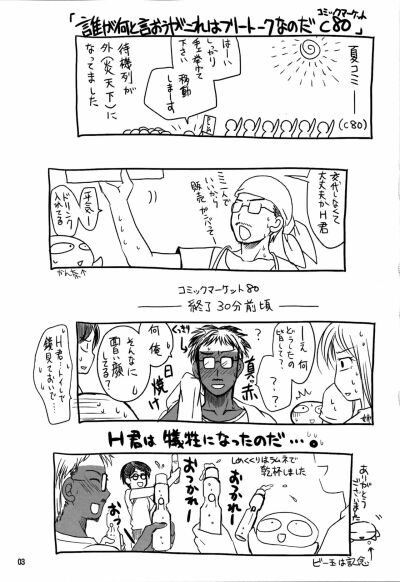 「誰が何と言おうがこれはフリートークなのだ コミックマーケットC80」
夏コミー
(C80)
はーい
しっかり
チェ挙げて
下さい
移動
しまーす
待機列が
外(炎天下)に
なってました
交代しなくて
大丈夫かH君
ミニ一人で
いいから
販売ガンバってー
平気ー
ドリンク
入れてる
かん奈↑
コミックマーケット80
終了30分前頃
いーえ何
どうしたの
皆して…?
?
?
真っ赤
日焼け
くっきり
何俺
そんなに
面白い顔
してる?
H君…トイレで
鏡見ておいで…
H君は犠牲になったのだ…。
しめくくりはラムネで
乾杯しました
おつかれー
おつかれー
おっ
ありがとう
ございました
ビー玉は記念
03